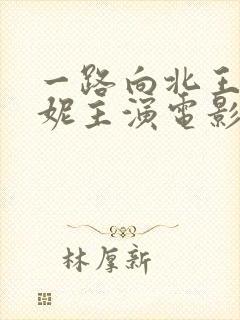 一路向北王
妮主演电影
林厚新